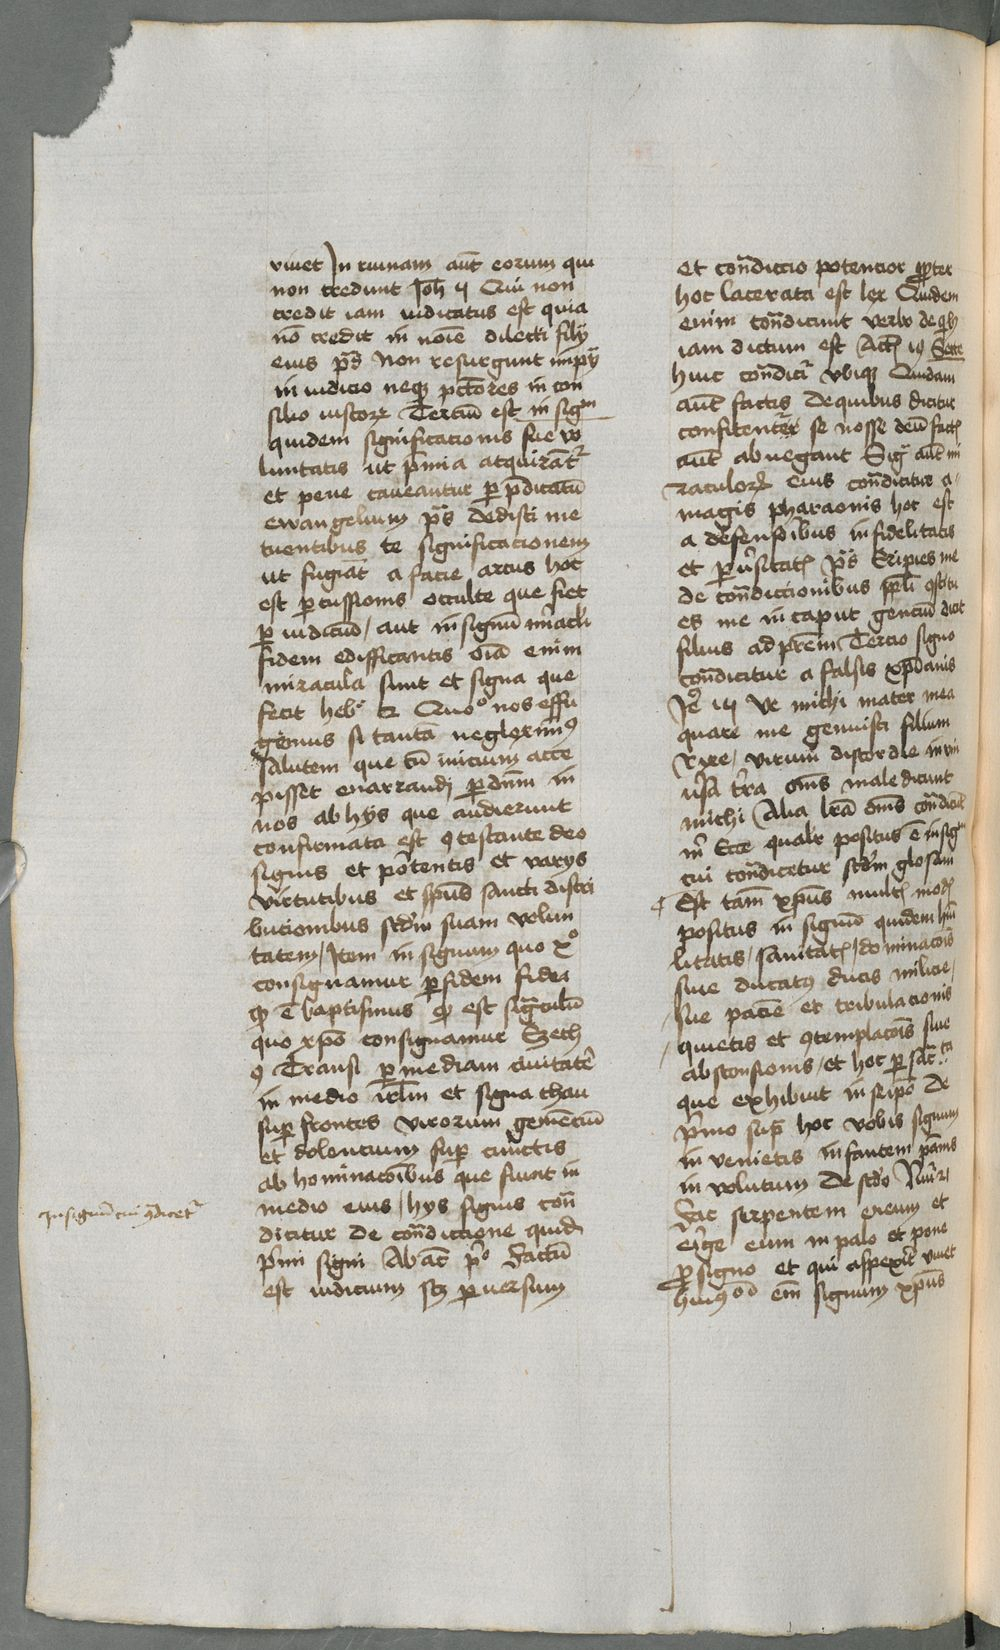 viuet In ruinam aut̄ eorum qui
non credunt Joh̄ ij Qui non
credit iam iudicatus est quia
nō credit in noīe dilecti filij
eius p̄s Non resurgunt impij
in iudicio neqꝫ pctores in con
silio iustorꝝ Tercium est in sigm
quidem significacionis sue vo
luntatis ut p̄mia acquirāt᷑
et pene caueantur ꝑ p̄dicatū
ewangelium p̄s dedisti me
tuentibus te significacionem
ut fugiāt a facie arcus hoc
est ꝑcussionis occulte que fiet
ꝑ iudiciū / aut in signū mīacli
fidem edifficantis oīa enim
miracula sunt et signa que
fecit heb. ij Quoº nos effu
giemus si tantā neglexīmꝰ
salutem que cū inicium acce
pisset enarrandj ꝑ dn̄m in
nos ab hijs que audierunt
confirmata est ꝯtestante deo
signis et portentis et varijs
virtutibus et sp̄us sancti distri
bucionibus scdm suam volun
tatem / Item in signum quo xº
consignamur ꝑ fidem fidei
qd̄ ē baptismus qd̄ est sig̅culū
quo xpō consignamur Ezech
ꝯ Transi ꝑ mediam ciuitatē
in medio irlm̄ et signa thau
suꝑ frontes virorum gemēciū
et dolencium suꝑ cunctis
abhominacōibus que fiunt in
medio eius / hijs signis con̄
dicitur De con̄diccione quidē
p̄mi signi Abac̄ pº Factū
est iudicium scꝫ ꝑuersum
In signū cui ꝯdicet᷑
et con̄diccio potencior ꝓpter
hoc lacerata est lex Quidem
enim con̄dicunt verbo de qbꝫ
iam dictum est Act̄ Secte
huic con̄dicit᷑ vbiqꝫ Quidam
aut̄ factis de quibus dicitur
confitent᷑ se nosse deū fact̄
aut̄ abnegant Sig᷑ aut̄ mi
raculorꝝ eius con̄dicitur a
magis pharaonis hoc est
a defensoribus infidelitatis
et ꝑuersitat̄ p̄s Eripies me
de con̄diccionibus ppli ꝯstitu
es me in caput genciū dicit
filius ad pr̄em Tercio signo
con̄dicitur a falsis xp̄ianis
Je. Ve michi mater mea
quare me genuisti filium
rixe / virum discordie in vni
uersa t̄ra om̄s maledicunt
michi Alia lr̄a om̄s con̄dicūt
m̄ Ecce qualr positus ē in sigm
cui con̄dicetur scdm glosam
Est tam̄ xpūs mult̄ mod̄
positus in signū quidem hui
litatis / sanitat̄ / dominacōis
siue ducatꝰ ducis milicie /
siue pacie et tribulacionis
quietis et ꝯtemplacōis siue
absconsionis / et hoc ꝑ
que exhibuit in seipō De
p̄mo sup̄ hoc vobis signum
inuenietis infantem pānis
inuolutum De scdo Nūi
Fac serpentem eneum et
erige eum in palo et pone
ꝓ signo et qui aspexit viuet
huiꝰ em̄ signum xpūs